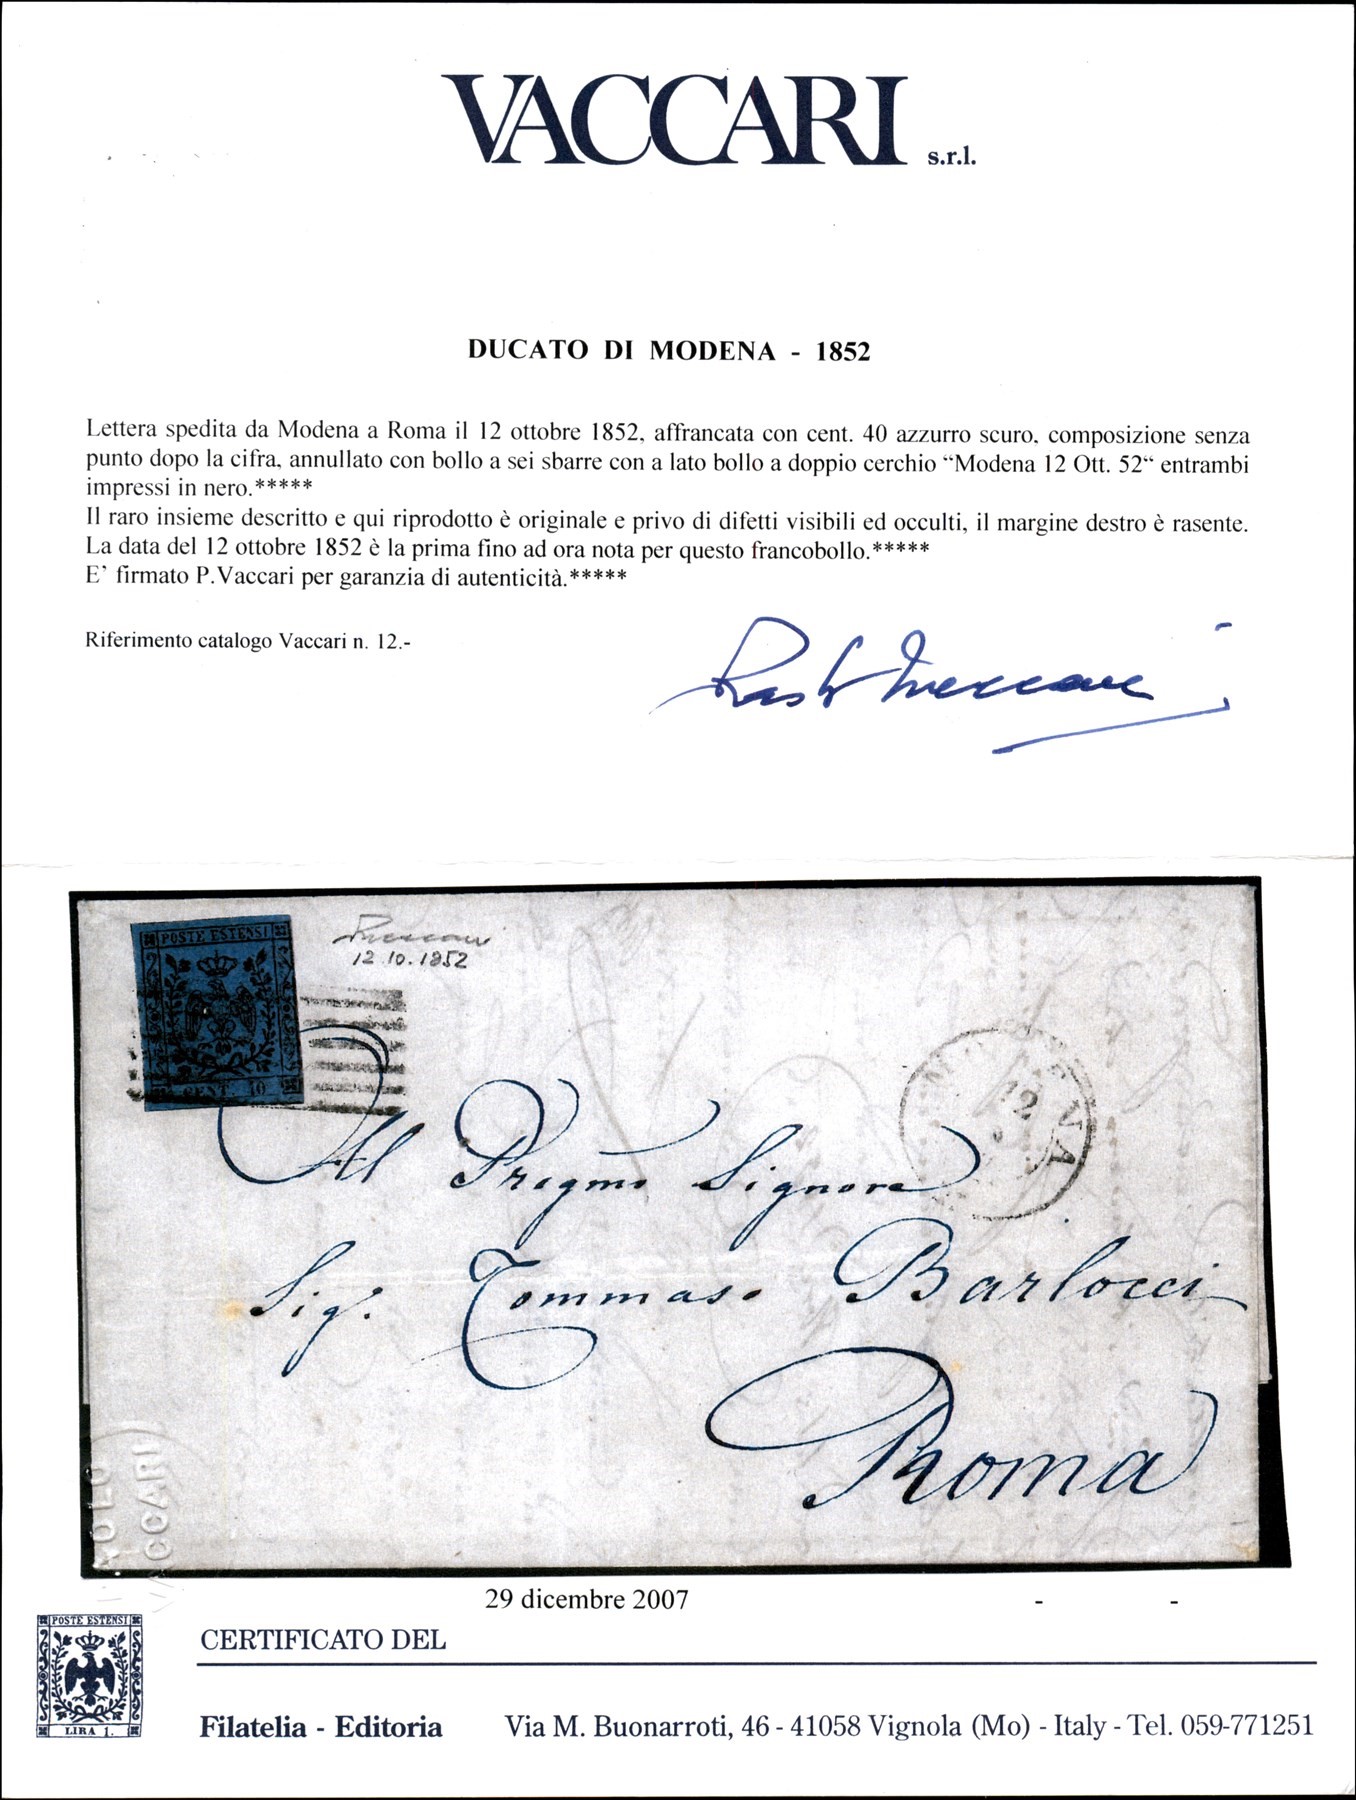 VACCARI s.r.l.
DUCATO DI MODENA - 1852
Lettera spedita da Modena a Roma il 12 ottobre 1852, affrancata con cent. 40 azzurro scuro, composizione senza
punto dopo la cifra, annullato con bollo a sei sbarre con a lato bollo a doppio cerchio “Modena 12 Ott. 52“ entrambi
impressi in nero.*****
Il raro insieme descritto e qui riprodotto è originale e privo di difetti visibili ed occulti, il margine destro è rasente.
La data del 12 ottobre 1852 è la prima fino ad ora nota per questo francobollo.*****
E' firmato P.Vaccari per garanzia di autenticità.*****
Riferimento catalogo Vaccari n. 12.-
POSTE ESTENSI
CENT. 40
Vaccari
12.10.1852
12
Al Pregmo Signore
Sigr. Tommaso Barlocci
Roma
VACCARI
29 dicembre 2007 - -
CERTIFICATO DEL
POSTE ESTENSI
LIRA 1.
Filatelia - Editoria Via M. Buonarroti, 46 - 41058 Vignola (Mo) - Italy - Tel. 059-771251